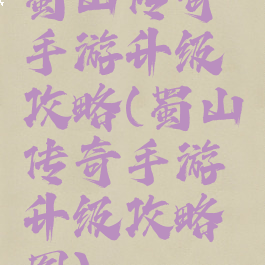 蜀山传奇
手游升级
攻略(蜀山
传奇手游
升级攻略
图)